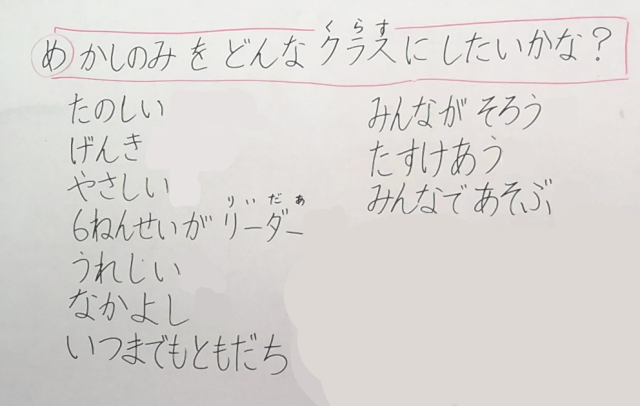 め かしのみを どんな クラス にしたいかな?
くらす
たのしい
げんき
やさしい
6ねんせいが リーダー
りいだぁ
うれしい
なかよし
いつまでもともだち
みんなが そろう
たすけあう
みんなで あそぶ